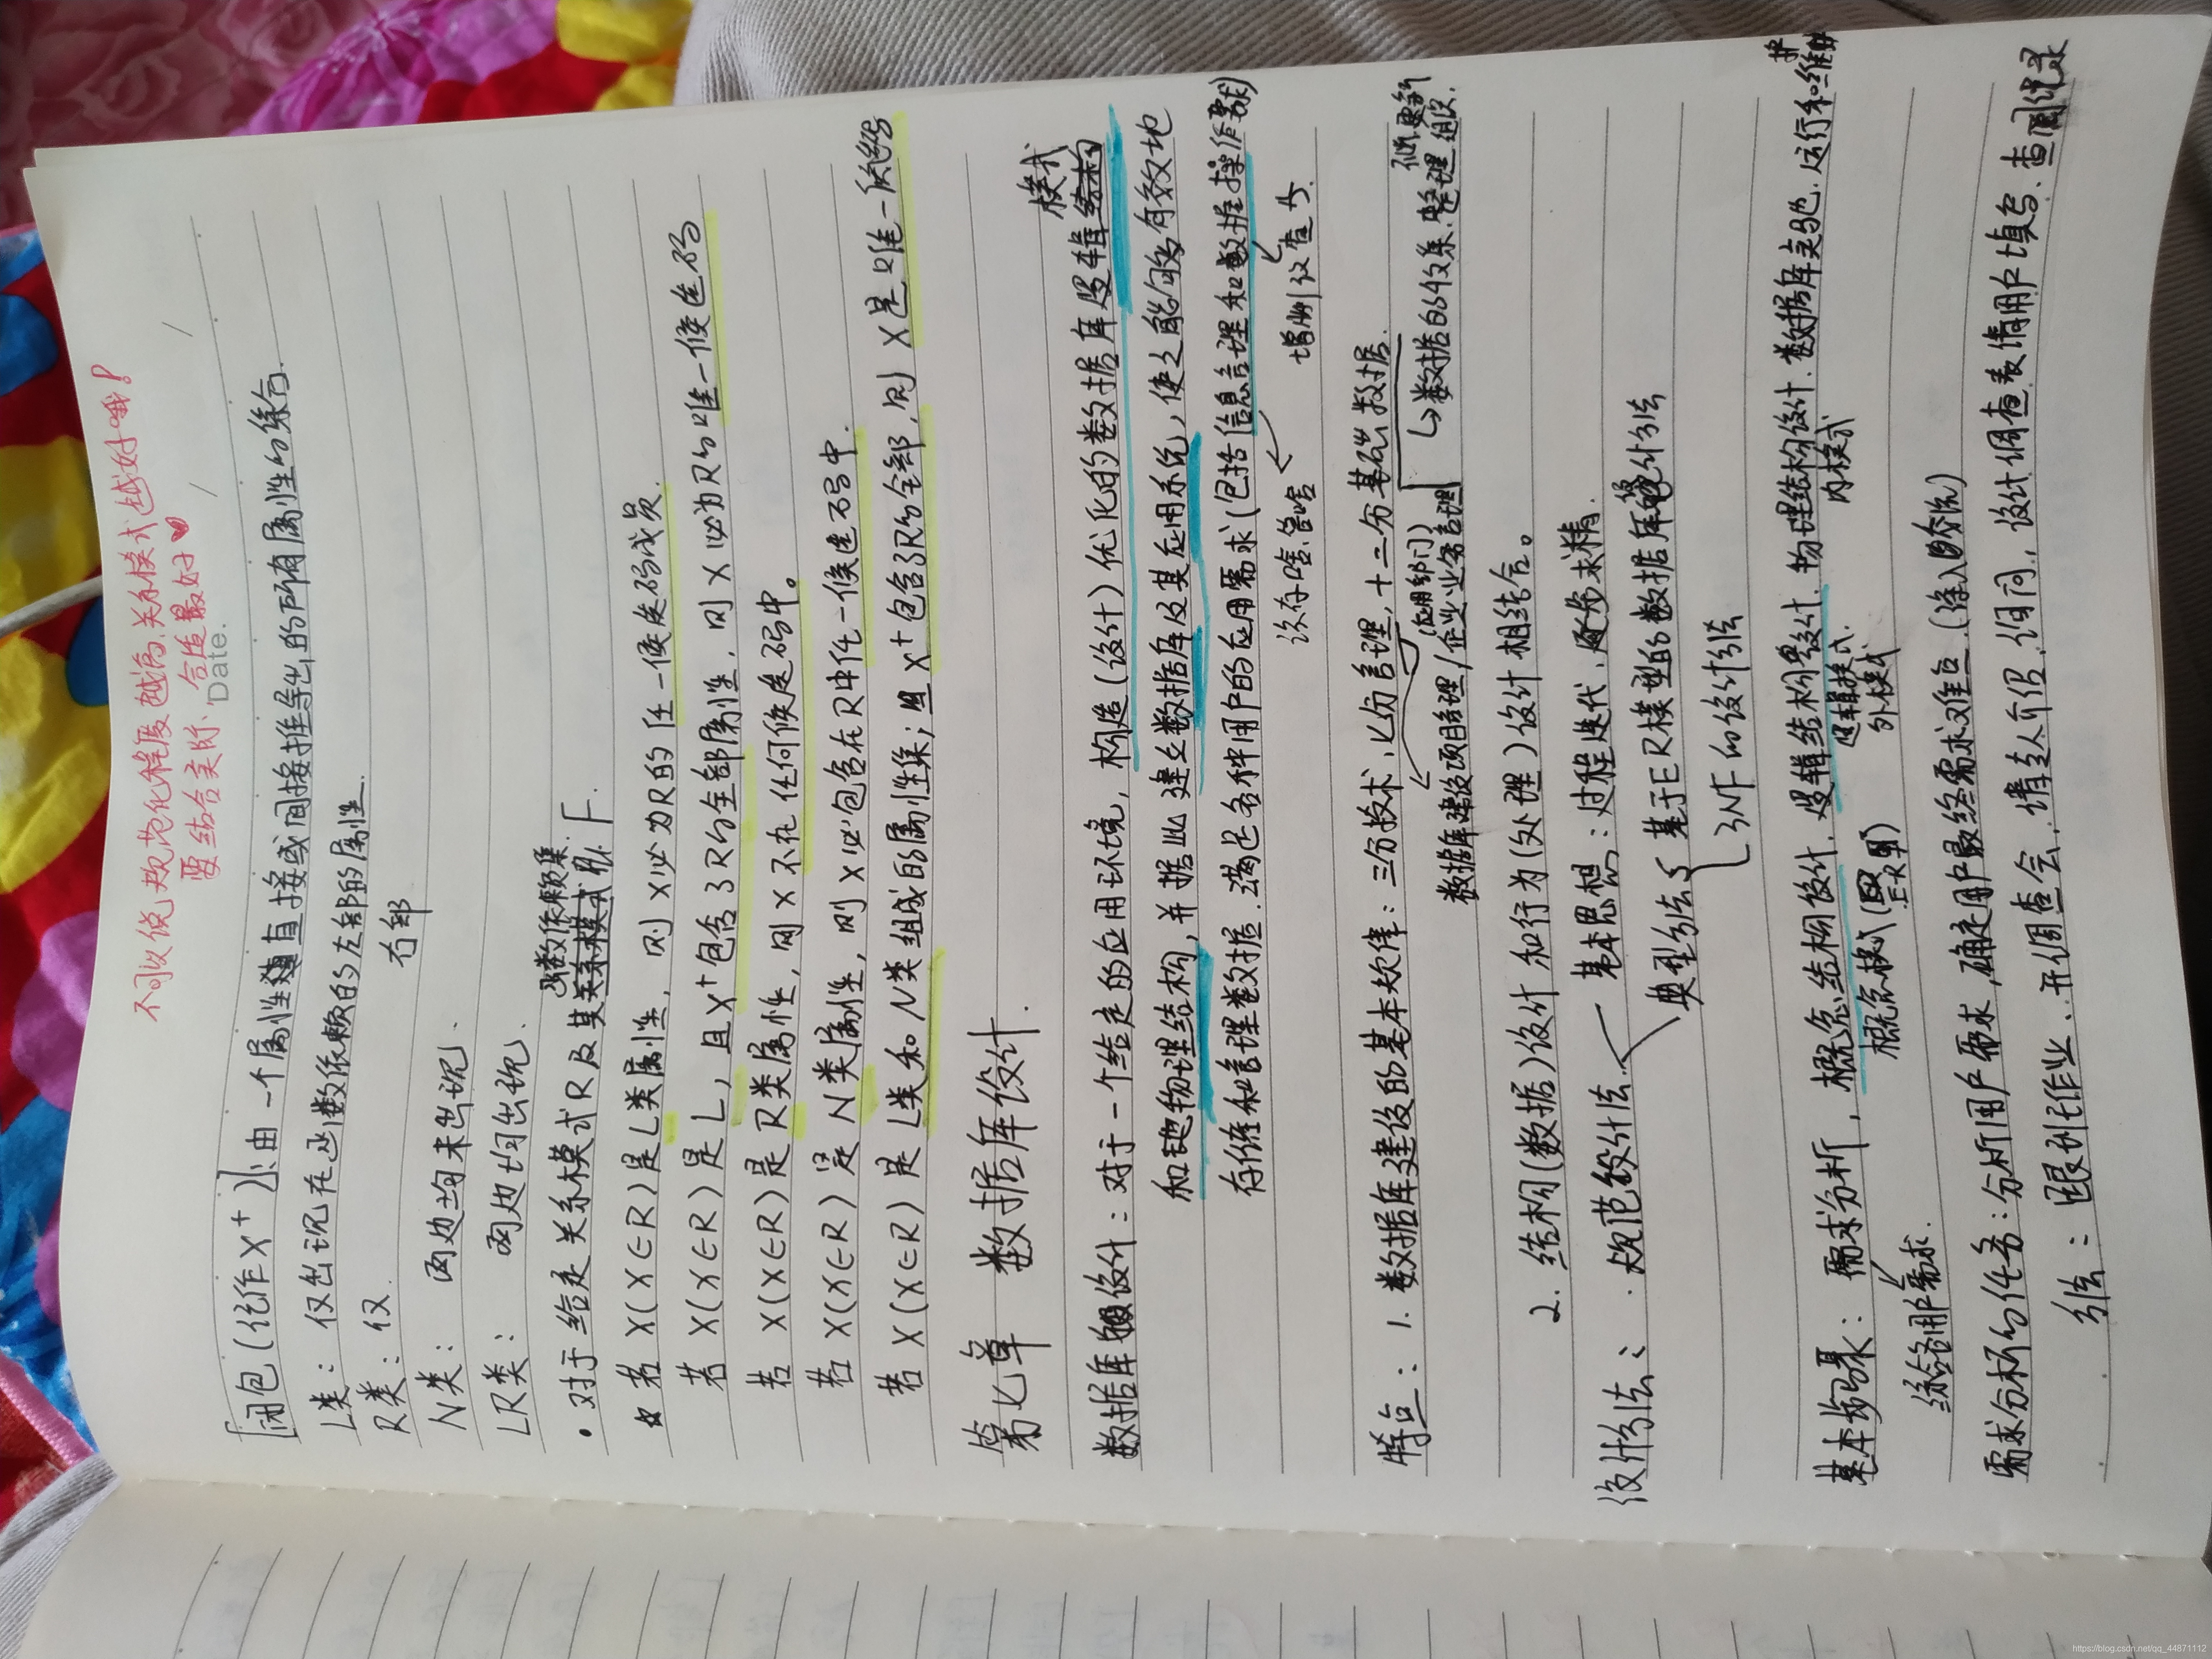 不可以说规范化程度越高,关系模式越好哦!
要结合实际,合适最好
Date.
闭包(记作X⁺):由一个属性直接或间接推导出的所有属性的集合.
L类:仅出现在函数依赖的左部的属性.
R类:仅 右部
N类:两边均未出现.
LR类:两边均出现.
函数依赖集
·对于给定关系模式R及其 F.
☆若X(X∈R)是L类属性,则X必为R的任一候选码成员.
若X(X∈R)是L,且X⁺包含了R的全部属性,则X必为R的唯一候选码
若X(X∈R)是R类属性,则X不在任何候选码中。
若X(X∈R)是N类属性,则X必包含在R中任一候选码中.
若X(X∈R)是L类和N类组成的属性集;且X⁺包含了R的全部,则X是唯一候选码
第七章 数据库设计.
模式
数据库设计:对于一个给定的应用环境,构造(设计)优化的数据库逻辑
和物理结构,并据此建立数据库及其应用系统,使之能够有效地
存储和管理数据.满足各种用户的应用需求(包括信息管理和数据操作要求)
该存啥.管啥 增删改查等.
特点:1.数据库建设的基本规律:三分技术,七分管理,十二分基础数据.
(应用部门)
数据库建设项目管理/企业业务管理 ↳数据的收集.整理.组织.
更新
2.结构(数据)设计和行为(处理)设计相结合。
设计方法:·规范设计法 基本思想:过程迭代,逐步求精.
典型方法{基于E-R模型的数据库设计方法
3NF的设计方法
基本步骤:需求分析,概念结构设计,逻辑结构设计,物理结构设计.数据库实施.运行和维护
综合用户需求. 概念模式(E-R图) 逻辑模式. 外模式 内模式
需求分析的任务:分析用户需求,确定用户最终需求难点.
方法:跟班作业.开调查会.请专人介绍.询问.设计调查表请用户填写.查阅记录
https://blog.csdn.net/qq_44871112